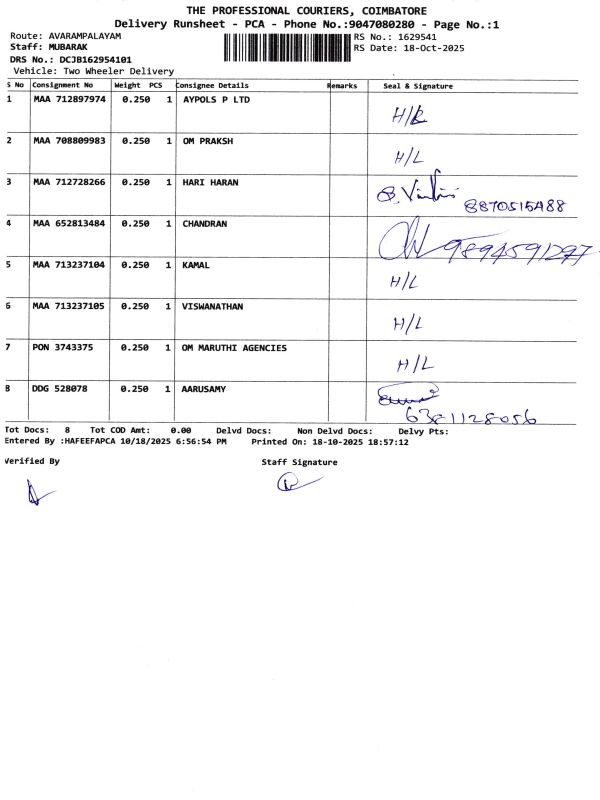 THE PROFESSIONAL COURIERS, COIMBATORE
Delivery Runsheet - PCA - Phone No.:9047080280 - Page No.:1
Route: AVARAMPALAYAM RS No.: 1629541
Staff: MUBARAK RS Date: 18-Oct-2025
DRS No.: DCJB162954101
Vehicle: Two Wheeler Delivery
S No Consignment No Weight PCS Consignee Details Remarks Seal & Signature
1 MAA 712897974 0.250 1 AYPOLS P LTD
2 MAA 708809983 0.250 1 OM PRAKSH H/L
3 MAA 712728266 0.250 1 HARI HARAN 8870515488
4 MAA 652813484 0.250 1 CHANDRAN 9894591297
5 MAA 713237104 0.250 1 KAMAL H/L
6 MAA 713237105 0.250 1 VISWANATHAN H/L
7 PON 3743375 0.250 1 OM MARUTHI AGENCIES H/L
8 DDG 528078 0.250 1 AARUSAMY 6381128056
Tot Docs: 8 Tot COD Amt: 0.00 Delvd Docs: Non Delvd Docs: Delvy Pts:
Entered By :HAFEEFAPCA 10/18/2025 6:56:54 PM Printed On: 18-10-2025 18:57:12
Verified By Staff Signature